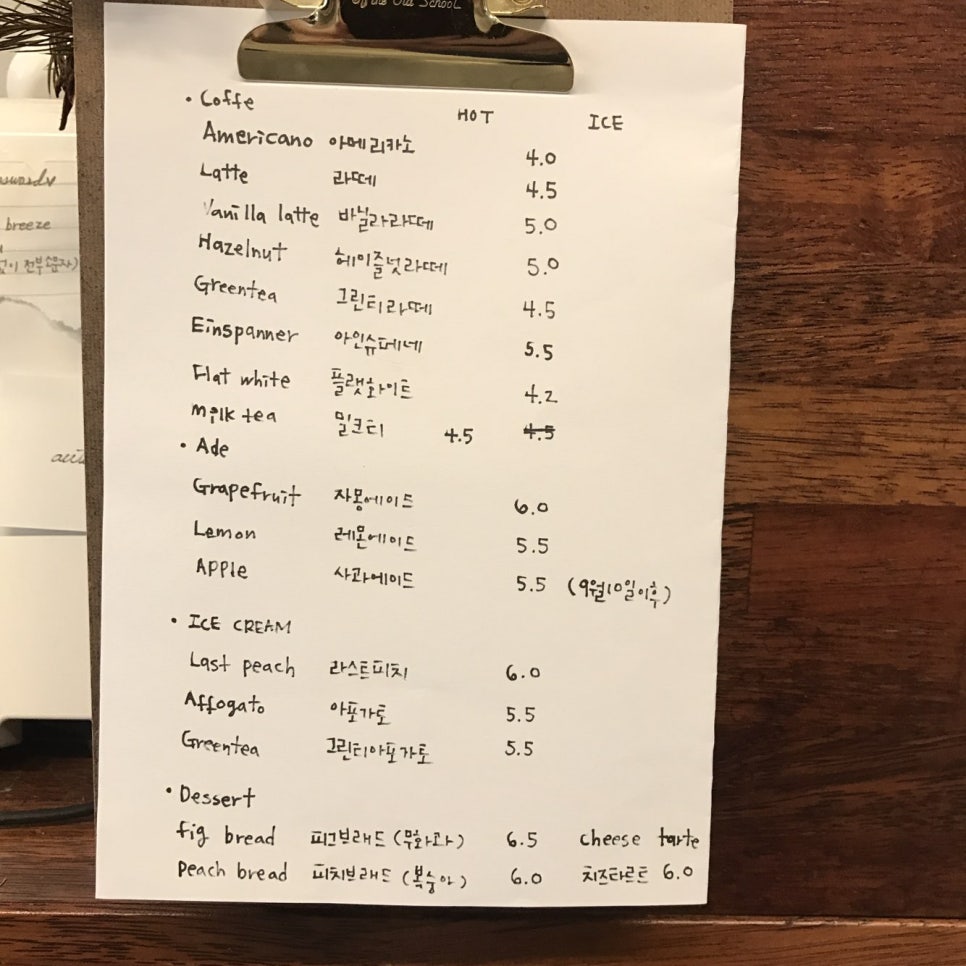 of the Old School
• Coffe HOT ICE
Americano 아메리카노 4.0
Latte 라떼 4.5
Vanilla latte 바닐라라떼 5.0
Hazelnut 헤이즐넛라떼 5.0
Greentea 그린티라떼 4.5
Einspanner 아인슈페네 5.5
Flat white 플랫화이트 4.2
Milk tea 밀크티 4.5 4.5
• Ade
Grapefruit 자몽에이드 6.0
Lemon 레몬에이드 5.5
Apple 사과에이드 5.5 (9월10일이후)
• ICE CREAM
Last peach 라스트피치 6.0
Affogato 아포가토 5.5
Greentea 그린티아포가토 5.5
• Dessert
fig bread 피그브래드 (무화과) 6.5 cheese tarte
Peach bread 피치브래드 (복숭아) 6.0 치즈타르트 6.0
breeze